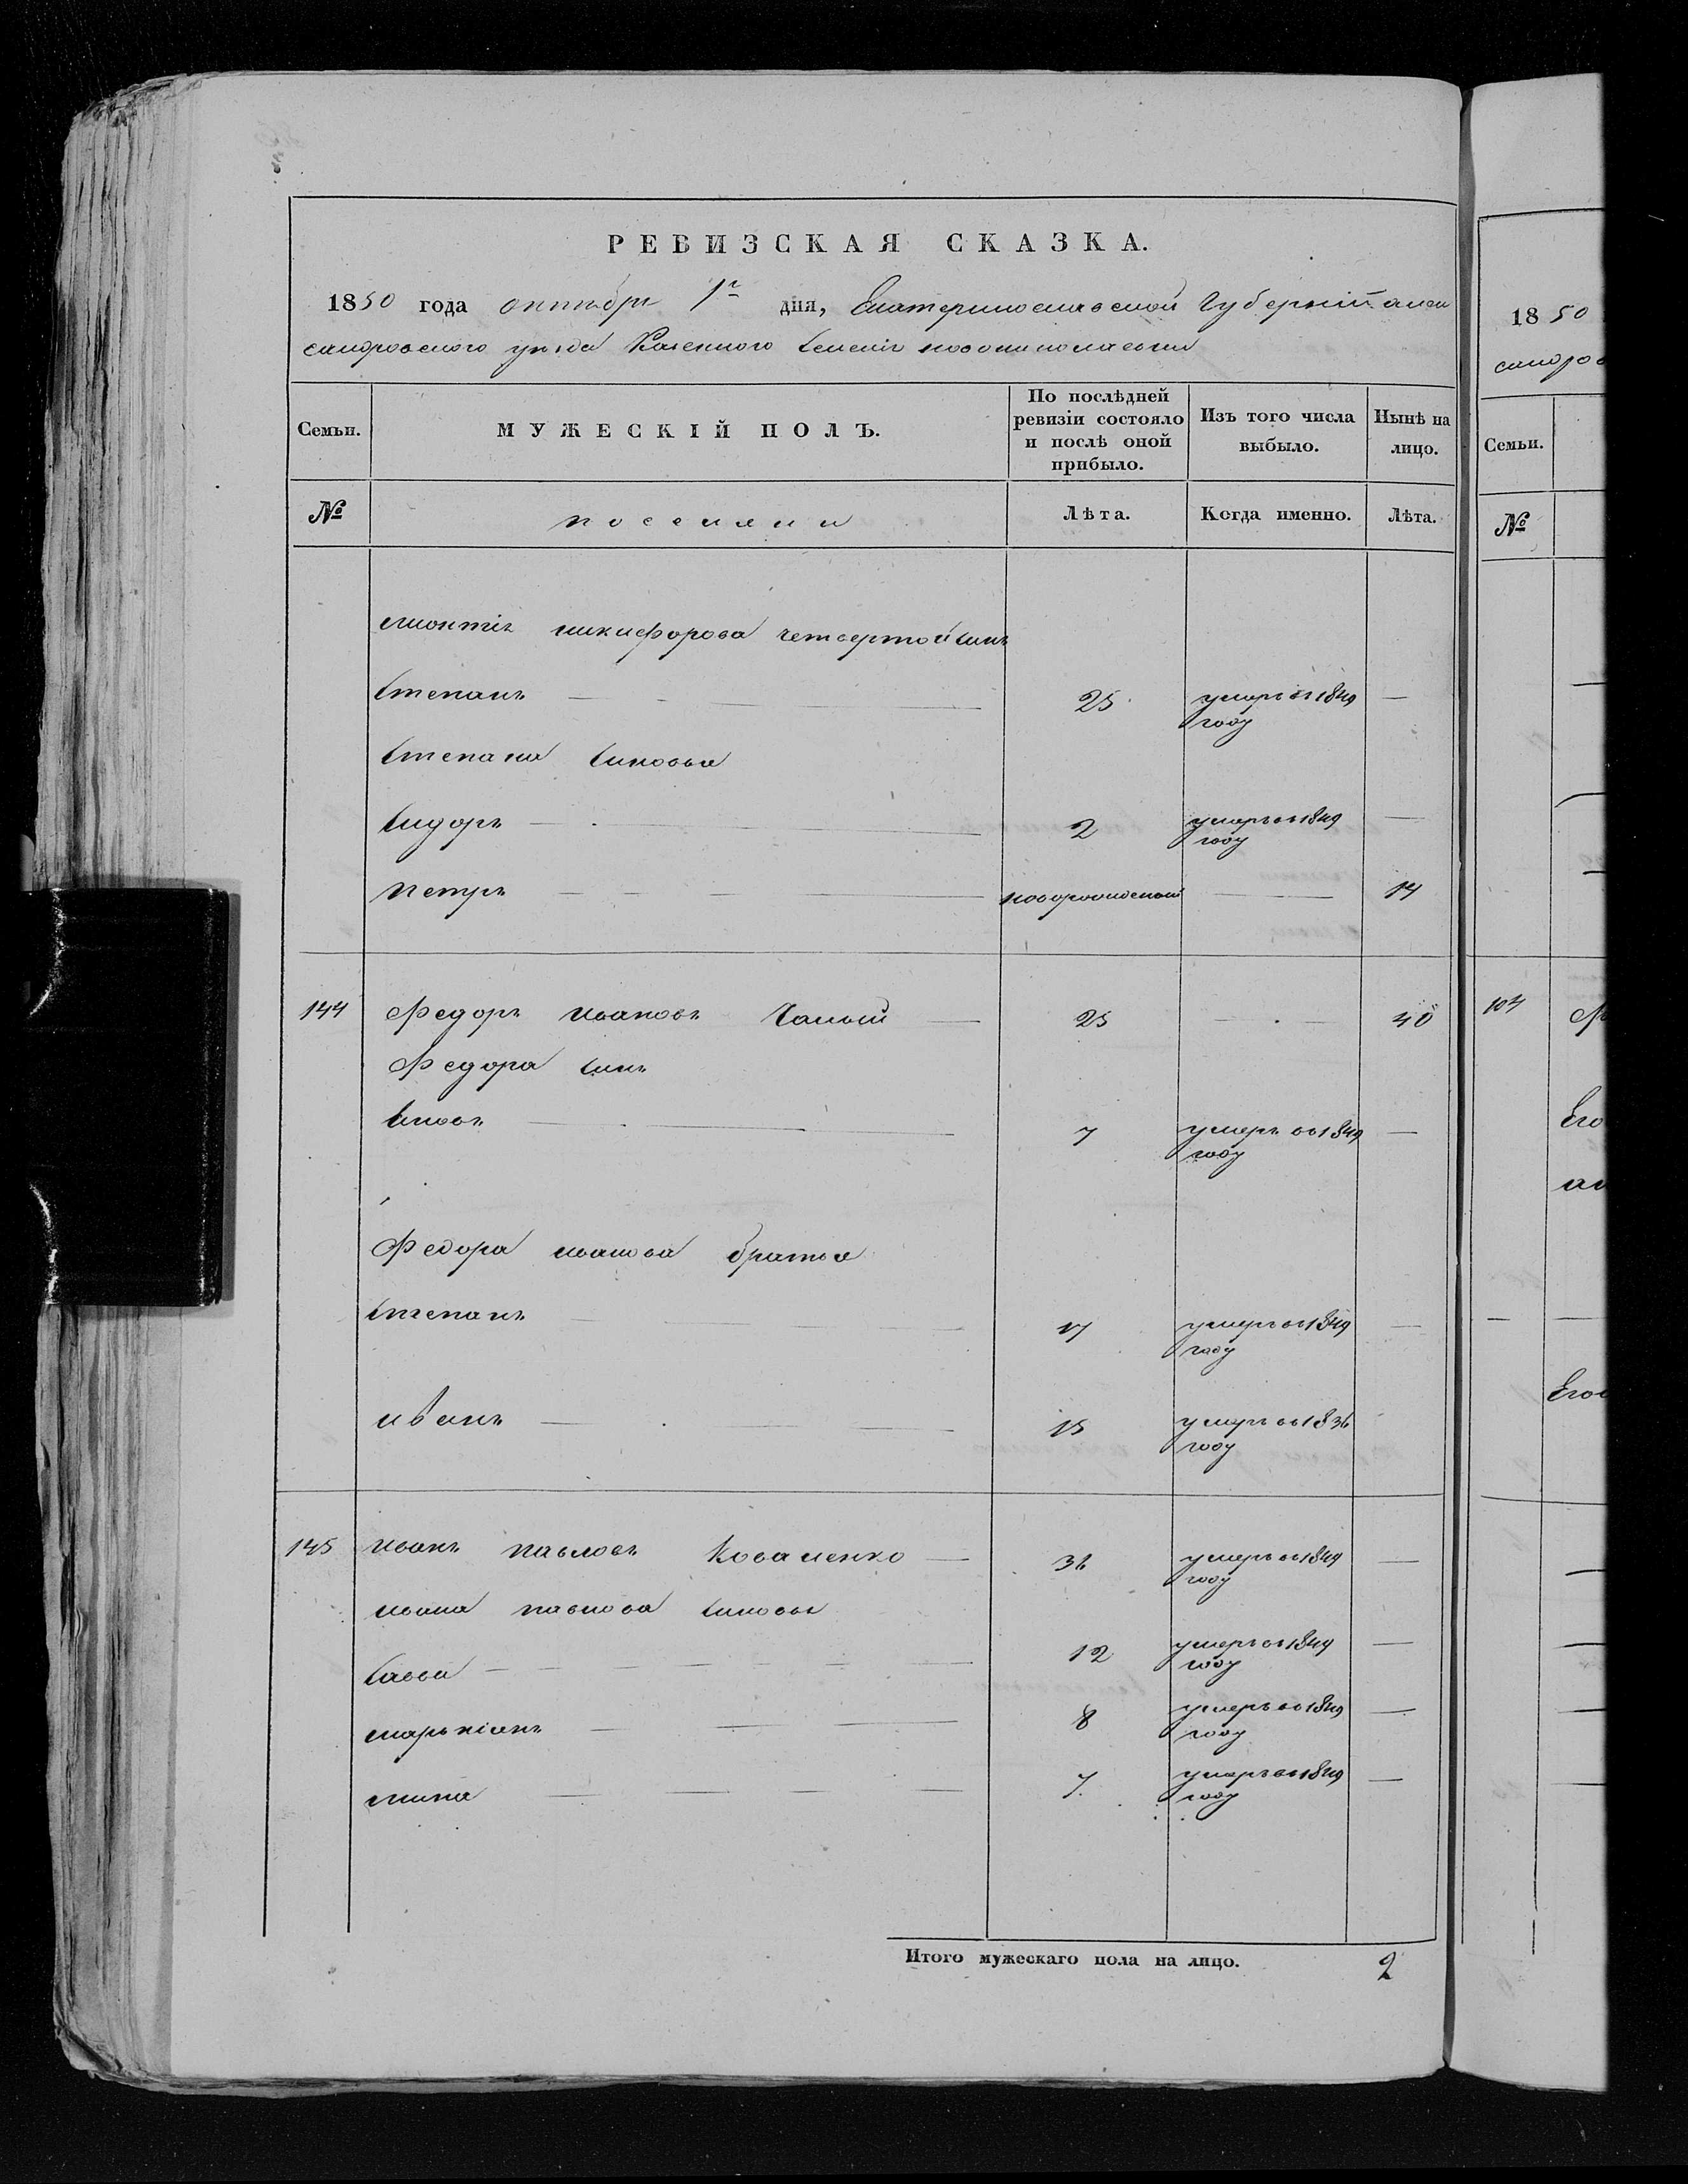 РЕВИЗСКАЯ СКАЗКА.
1850 года октября 1го дня, Екатеринославской Губерніи Алек
сандровского уезда Казенного Селенія новониколаевки
Семьи.
МУЖЕСКІЙ ПОЛЪ.
По послѣдней ревизіи состояло и послѣ оной прибыло.
Изъ того числа выбыло.
Нынѣ на лицо.
№ поселяни Лѣта. Когда именно. Лѣта.
никифорова четвертой синъ
Степанъ 25 умеръ в 1849 году —
Степана Синовья
Сидоръ 2 умеръ в 1849 году —
Петръ новорожденый — 14
144 Федоръ Ивановъ 25 — 40
Федора синъ
7 умеръ в 1849 году —
Федора Иванова братья
Степанъ 17 умеръ в 1849 году —
Иванъ 15 умеръ в 1836 году
145 Иванъ Павловъ Коваленко 36 умеръ в 1849 году —
Ивана Павлова Синовья
Савва 12 умеръ в 1849 году —
Маркіянъ 8 умеръ в 1849 году —
Мина 7 умеръ в 1849 году —
Итого мужескаго пола на лицо. 2
1850
сандров
Семьи.
№
104 Ф
Его
Его